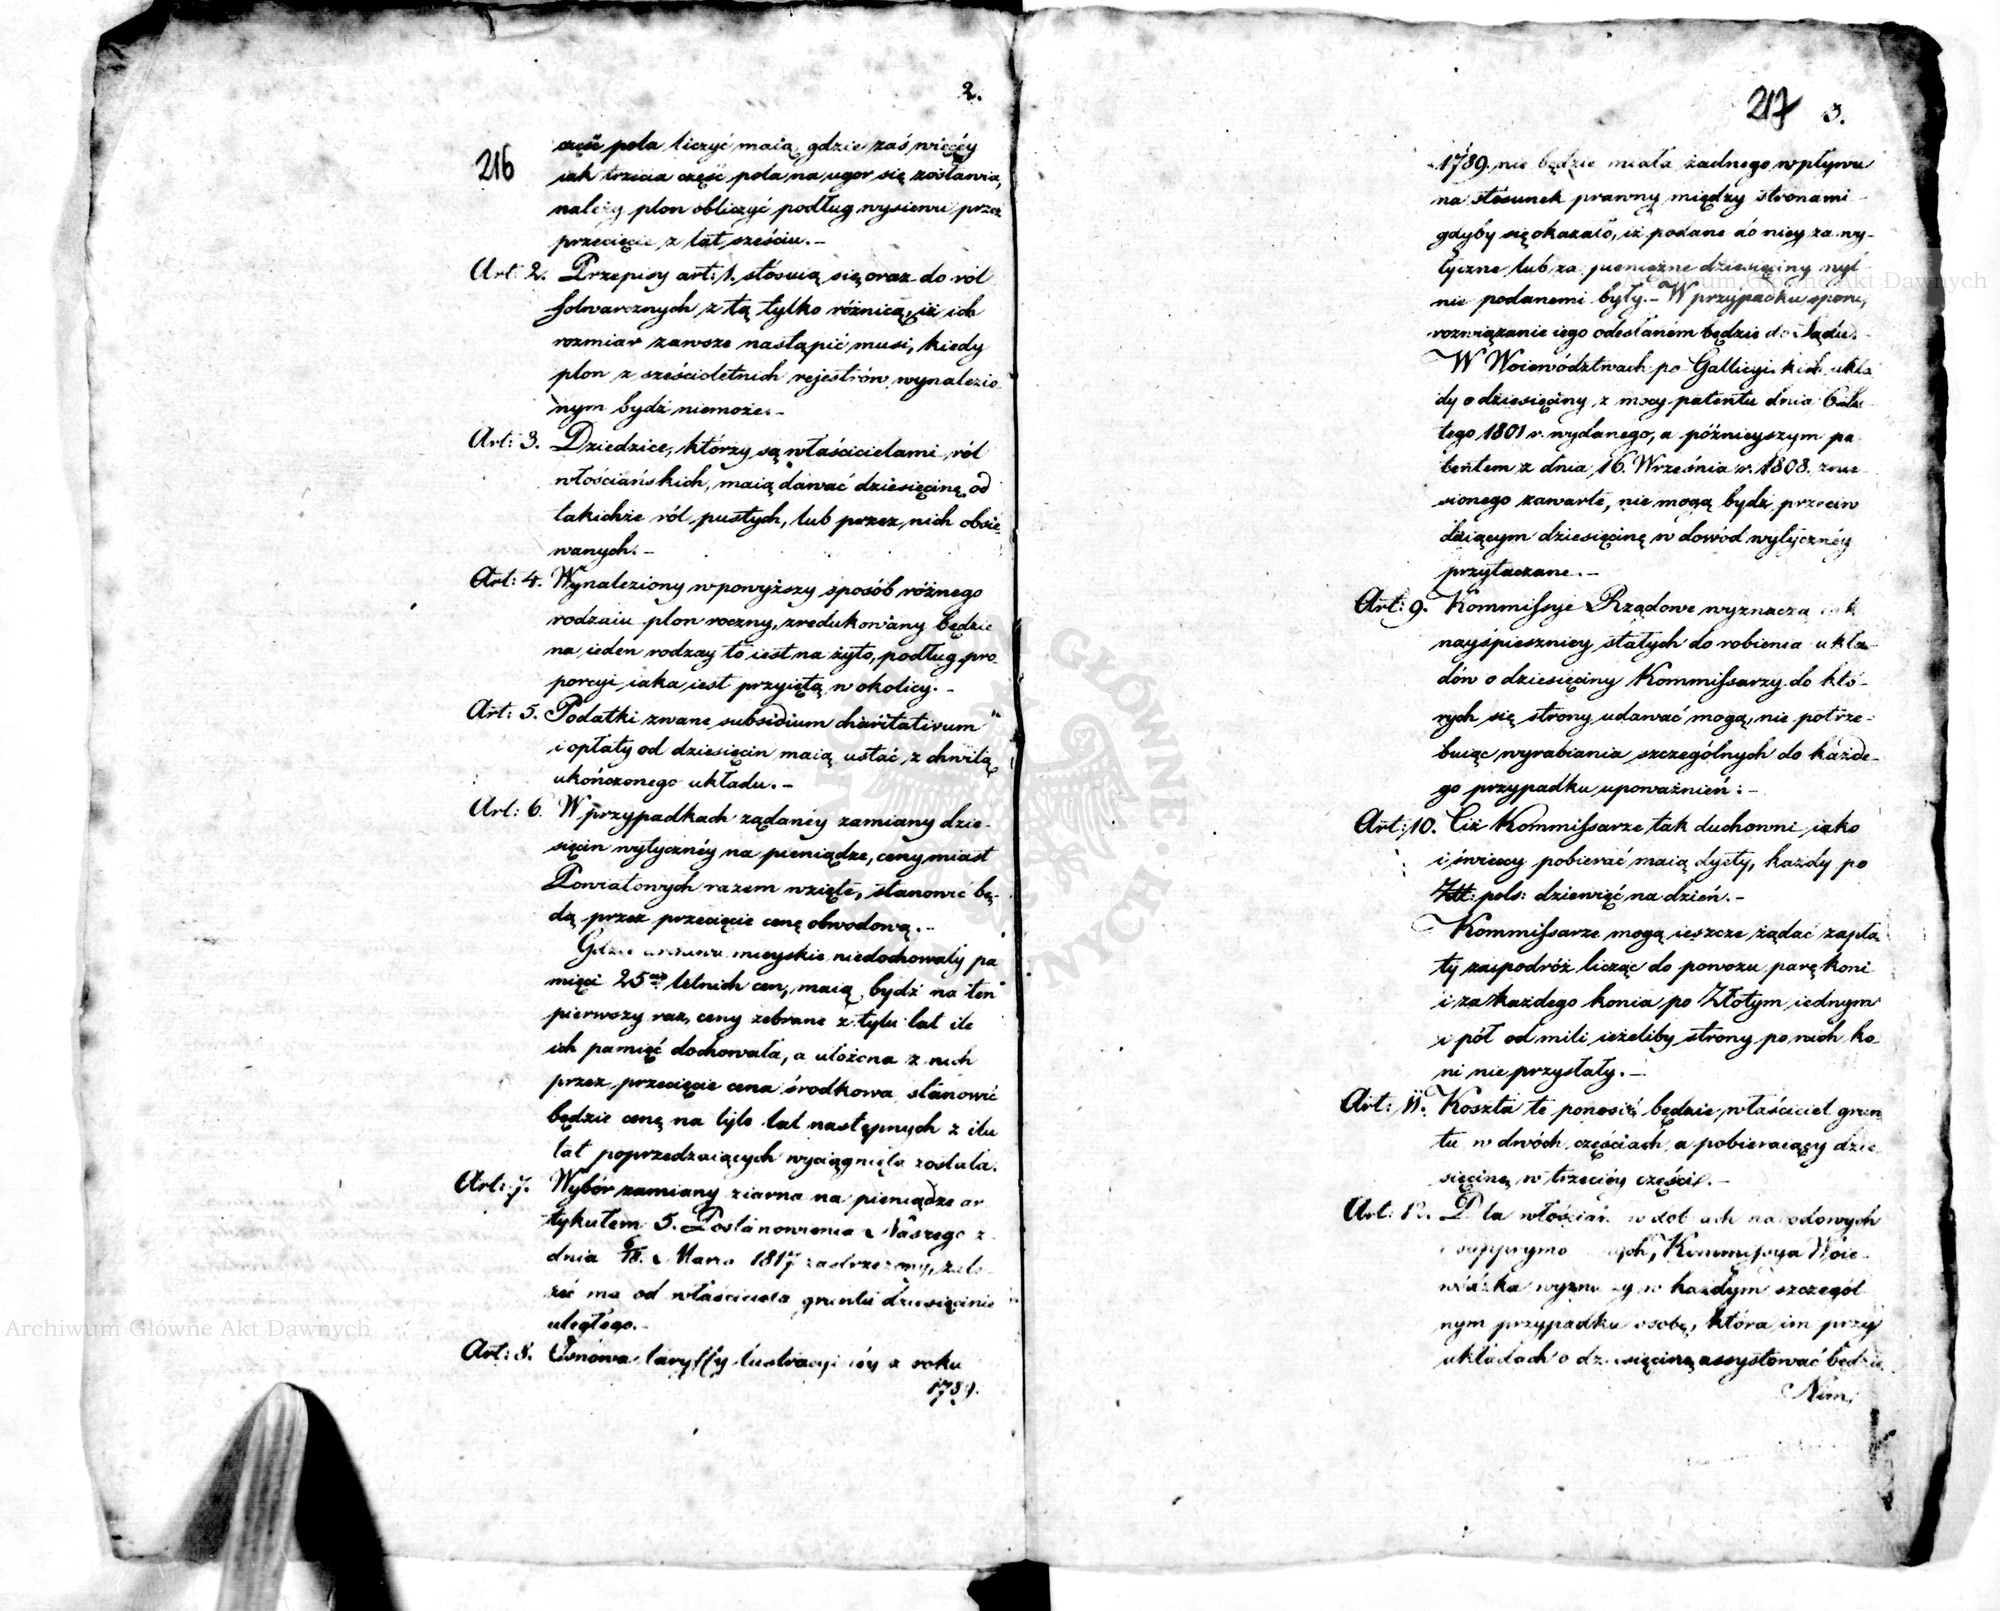 2.
216
część pola liczyć maią, gdzie zaś więcéy
iak trzecia część pola na ugor się zostawia,
należy plon obliczyć podług wysiewu przez
przecięcie z lat sześciu. –
Art: 2. Przepisy art: 1. stósuią się oraz do ról
folwarcznych z tą tylko różnicą, iż ich
rozmiar zawsze nastąpić musi, kiedy
plon z sześcioletnich rejestrów wynalezio
nym bydź niemoże. –
Art: 3. Dziedzice, którzy są właścicielami ról
włościańskich, maią dawać dziesięcinę od
takichże ról pustych, lub przez nich obsie-
wanych. –
Art: 4. Wynaleziony w powyższy sposób różnego
rodzaiu plon roczny, zredukowany będzie
na ieden rodzay to iest na żyto, podług pro-
porcyi iaka iest przyiętą w okolicy. –
Art: 5. Podatki zwane subsidium charitativum"
i opłaty od dziesięcin maią ustać z chwilą
ukończonego układu. –
Art: 6. W przypadkach żądanéy zamiany dzie-
sięcin wytycznéy na pieniądze, ceny miast
Powiatowych razem wzięte, stanowić bę-
dą przez przecięcie cenę obwodową. –
Gdzie miéyskie niedochowały pa
mięci 25 letnich cen, maią bydź na ten
pierwszy raz, ceny zebrane z tylu lat ile
ich pamięć dochowała, a ułożona z nich
przez przecięcie cena środkowa stanowić
będzie cenę na tyle lat następnych z ilu
lat poprzedzaiących wyciągnięta została.
Art: 7. Wybór zamiany ziarna na pieniądze ar
tykułem 5. Postanowienia Naszego z
dnia 6/18. Marca 1817 zastrzeżony, zale-
żeć ma od właściciela gruntu dziesięcinie
uległego. –
Art: 8. Osnowa taryffy lustracyinéy z roku
1789.
217 3.
1789. nie będzie miała żadnego wpływu
na stosunek prawny między stronami
gdyby się okazało, iż podane do niey za wy-
tyczne lub za pieniężne dziesięciny nyl
nie podanemi były. – W przypadku sporu,
rozwiązanie iego odesłaném będzie do Sądu. –
W Woiewództwach po Gallicyiskich ukła
dy o dziesięciny z mocy patentu dnia 6 Lu
tego 1801 r. wydanego, a późnieyszym pa
tentem z dnia 16. Września r. 1808. znie
sionego zawarte, nie mogą bydź przeciw
daiącym dziesięcinę w dowod wytycznéy
przytaczane. –
Art: 9. Kommissye Rządowe wyznaczą iak
nayśpieszniey stałych do robienia ukła-
dów o dziesięciny Kommissarzy do któ-
rych się strony udawać mogą, nie potrze-
buiąc wyrabiania szczególnych do każde-
go przypadku upoważnień: –
Art: 10. Ciż Kommissarze tak duchowni iako
i świeccy pobierać maią dyety, każdy po
Złt: pols: dziewięć na dzień. –
Kommissarze mogą ieszcze żądać zapła
ty za podróż licząc do powozu parę koni
i za każdego konia po Złotym iednym
i pół od mili ieżeliby strony po nich ko
ni nie przysłały. –
Art: 11. Koszta te ponosić będzie właściciel grun
tu w dwóch częściach, a pobieraiący dzie
sięcinę w trzeciéy części. –
Art: 12. Dla włościan w dobrach narodowych
i suppprymowanych, Kommissya Woie-
wódzka wyznaczy w każdym szczegól
nym przypadku osobę, która im przy
układach o dziesięcinę assystować będzie.
Nim,
Archiwum Główne Akt Dawnych